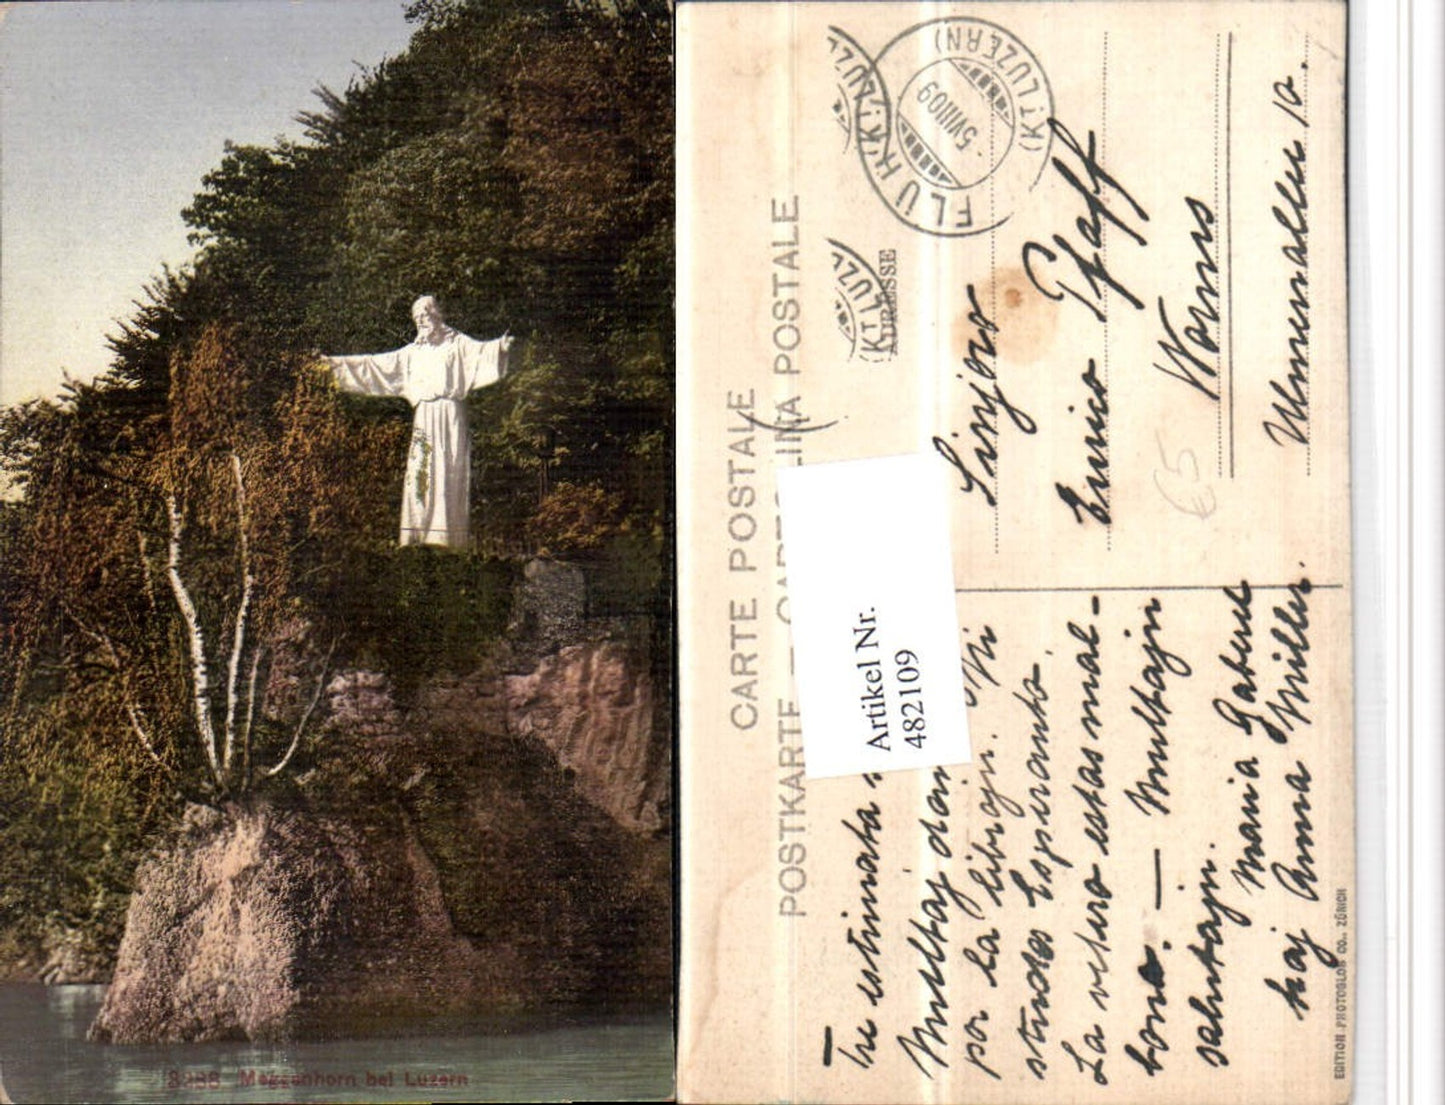 3288 Meggenhorn bei Luzern
CARTE POSTALE
POSTKARTE — CARTOLINA POSTALE
ADRESSE
FLÜHLI (KT. LUZERN)
5 VIII 09
(KT. LUZ
Artikel Nr.
482109
Sinjoro
Enrico Pfaff
Worms
€5
Tre estimata
Multaj dan
por la librajn. Mi
studos Esperanto.
La vetero estas mal-
bona. — Multajn
salutajn.
Maria
kaj Anna Miller.
EDITION PHOTOGLOB CO., ZÜRICH